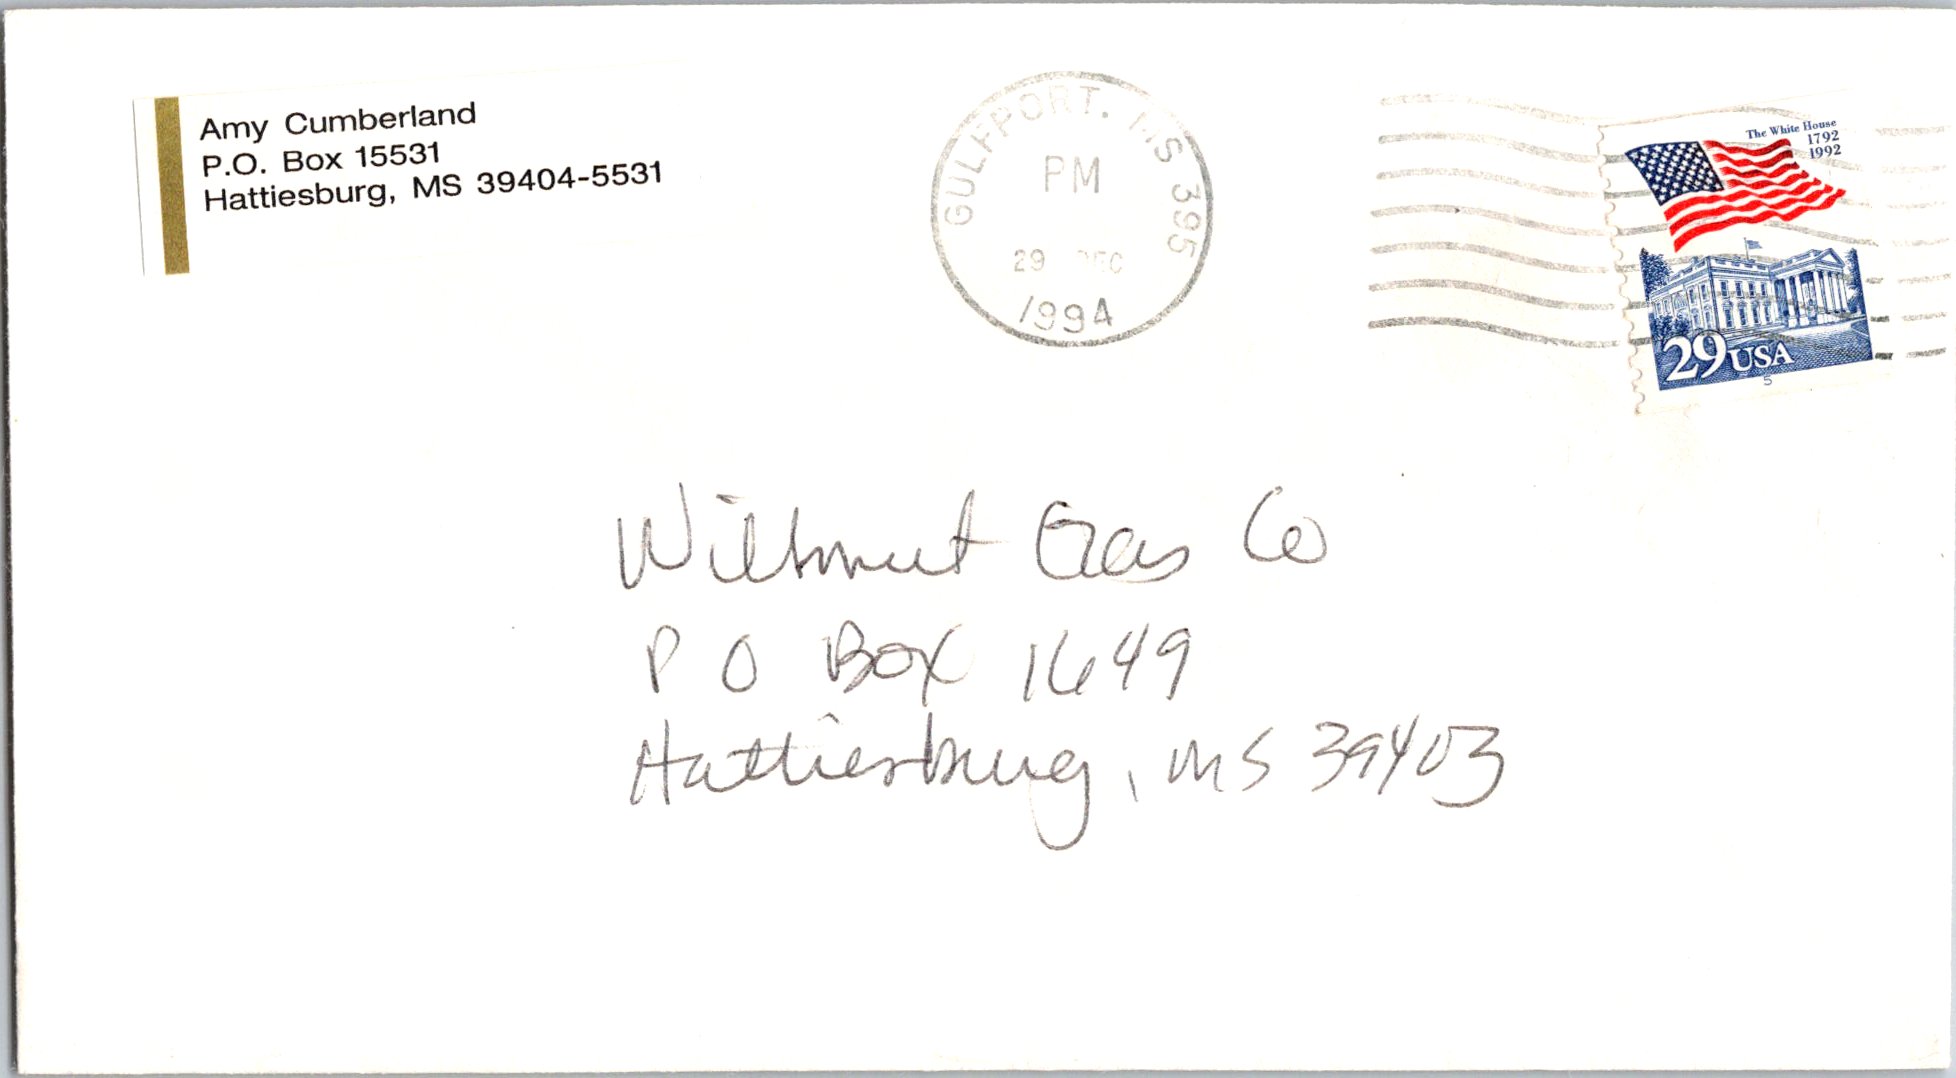 Amy Cumberland
P.O. Box 15531
Hattiesburg, MS 39404-5531
GULFPORT, MS 395
PM
29 DEC
1994
The White House
1792
1992
29 USA
5
Willmut Gas Co
P O Box 1649
Hattiesburg, MS 39403